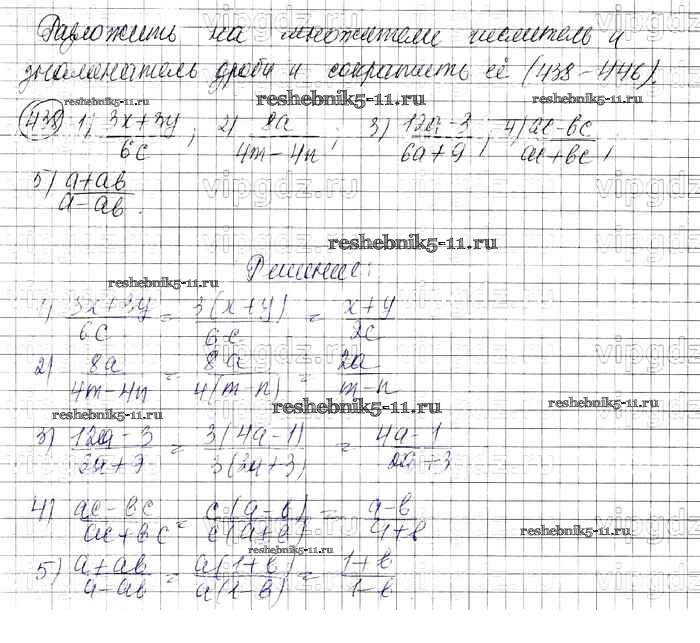 Разложить на множители числитель и
знаменатель дроби и сократить её (438-446).
reshebnik5-11.ru reshebnik5-11.ru reshebnik5-11.ru
438) 1) (3x+3y)/(6c); 2) 8a/(4m-4n); 3) (12a-3)/(6a+9); 4) (ac-bc)/(ac+bc);
5) (a+ab)/(a-ab).
reshebnik5-11.ru
Решение:
reshebnik5-11.ru
1) (3x+3y)/(6c) = 3(x+y)/(6c) = (x+y)/(2c)
2) 8a/(4m-4n) = 8a/(4(m-n)) = 2a/(m-n)
reshebnik5-11.ru reshebnik5-11.ru reshebnik5-11.ru
3) (12a-3)/(6a+9) = 3(4a-1)/(3(2a+3)) = (4a-1)/(2a+3)
4) (ac-bc)/(ac+bc) = c(a-b)/(c(a+b)) = (a-b)/(a+b)
reshebnik5-11.ru
reshebnik5-11.ru
5) (a+ab)/(a-ab) = a(1+b)/(a(1-b)) = (1+b)/(1-b)
vipgdz.ru